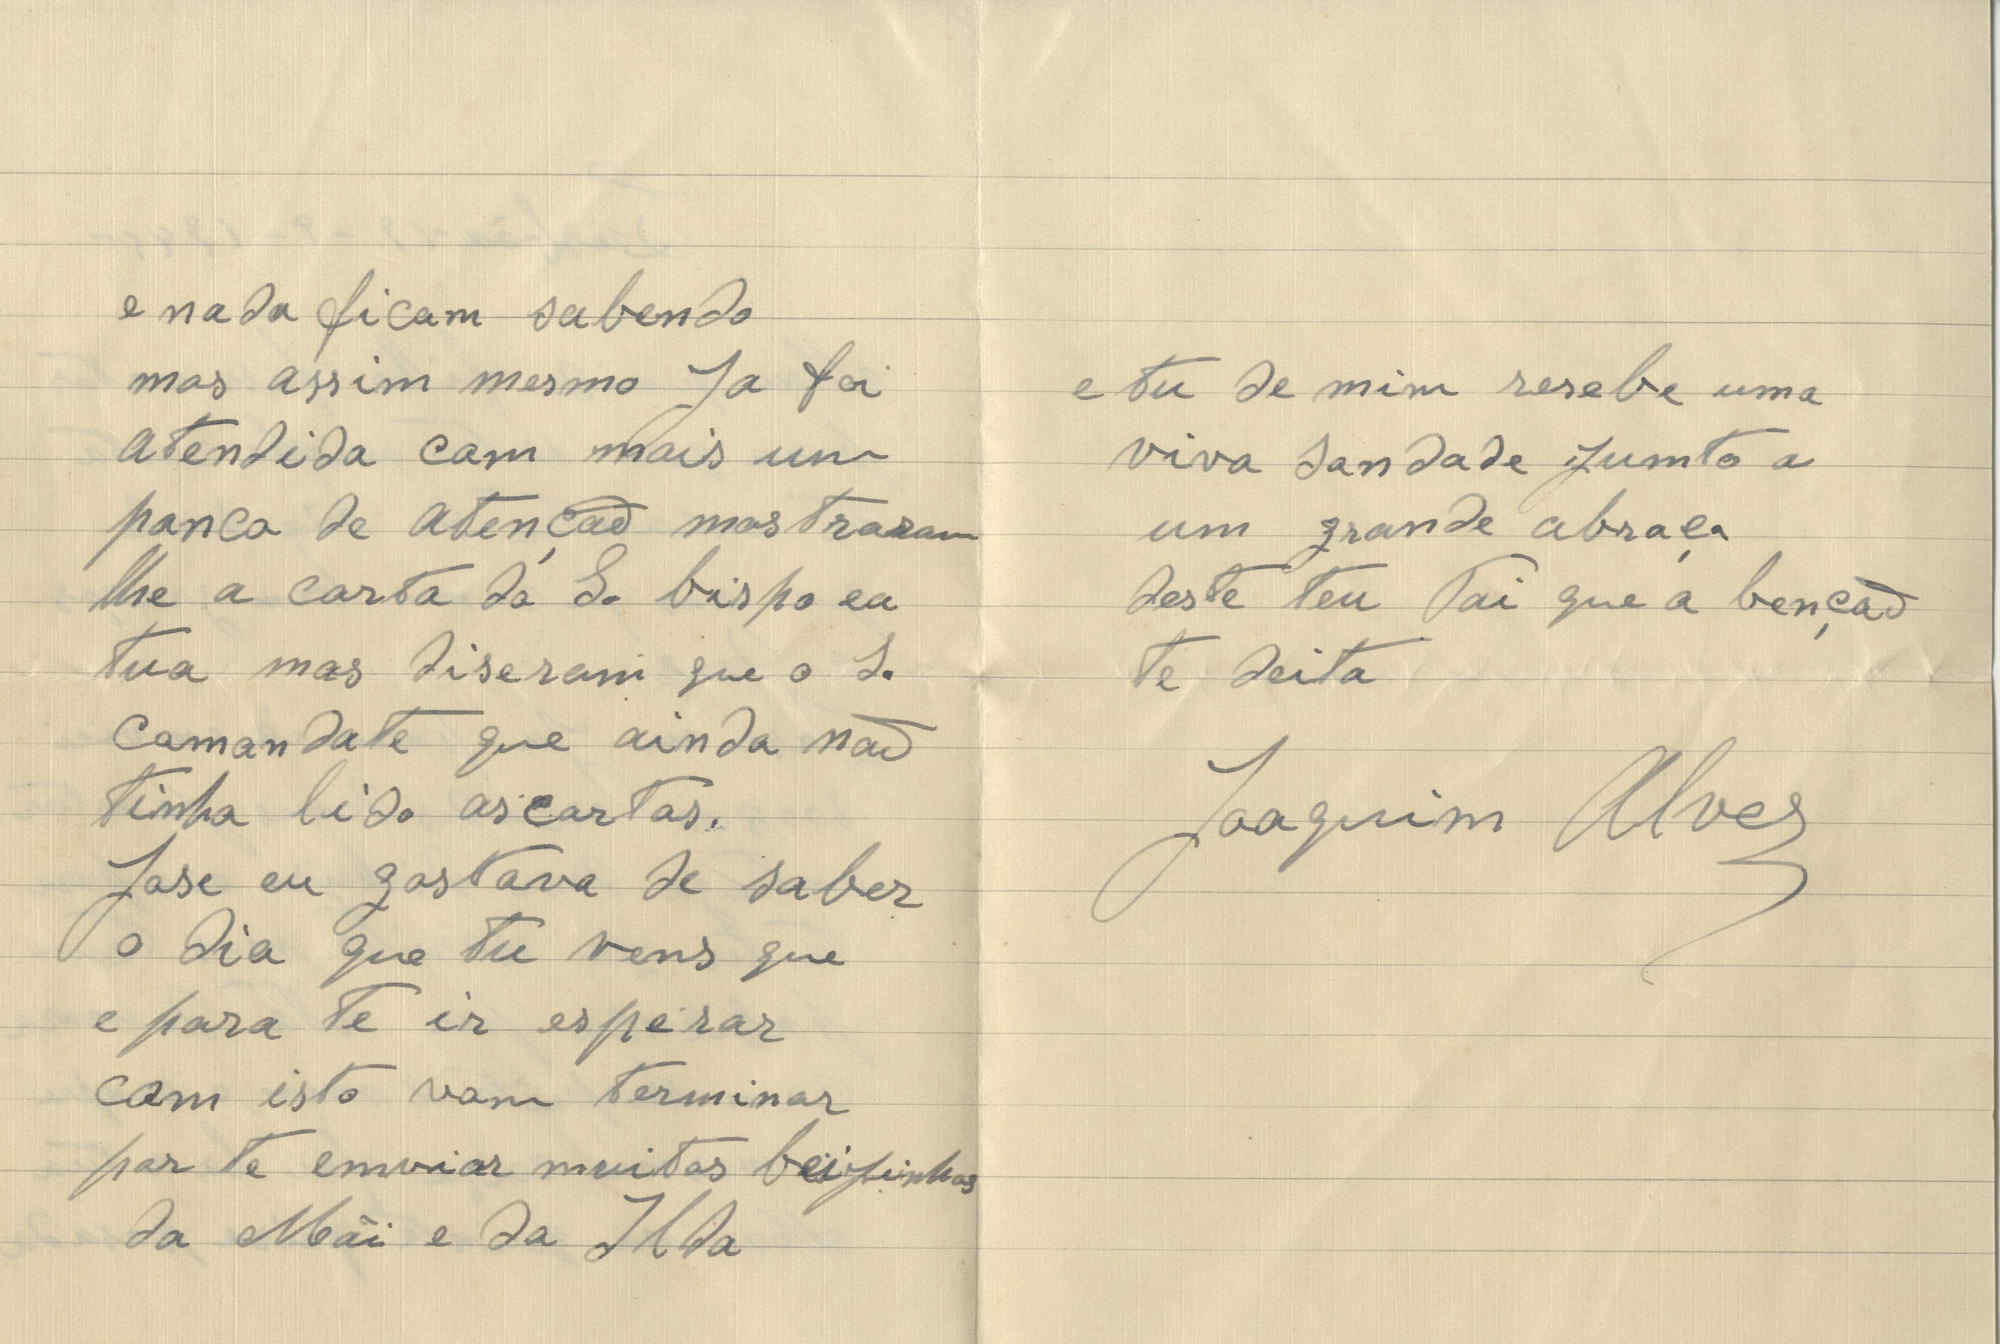 e nada ficam sabendo
mas assim mesmo Ja foi
atendida com mais um
pouco de atençaõ mostraram
lhe a carta do S. bispo ea
tua mas diseram que o S.
comandate que ainda naõ
tinha lido ascartas.
Jose eu gostava de saber
o dia que tu vens que
e para te ir esperar
com isto vou terminar
por te enviar muitos beijinhos
da Mãi e da Ilda
e tu de mim resebe uma
viva saudade Jumto a
um grande abraço
deste teu Pai que a bençaõ
te deita
Joaquim Alves